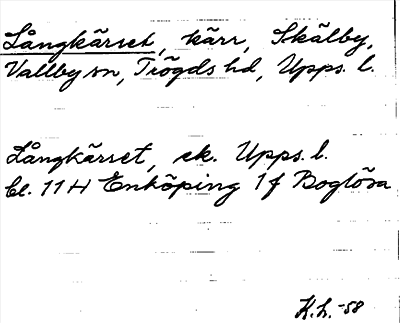 Långkärset, kärr, Skälby,
Vallby sn, Trögds hd, Upps. l.
Långkärset, ek. Upps. l.
bl. 11 H Enköping 1 f Boglösa
K.L. -58